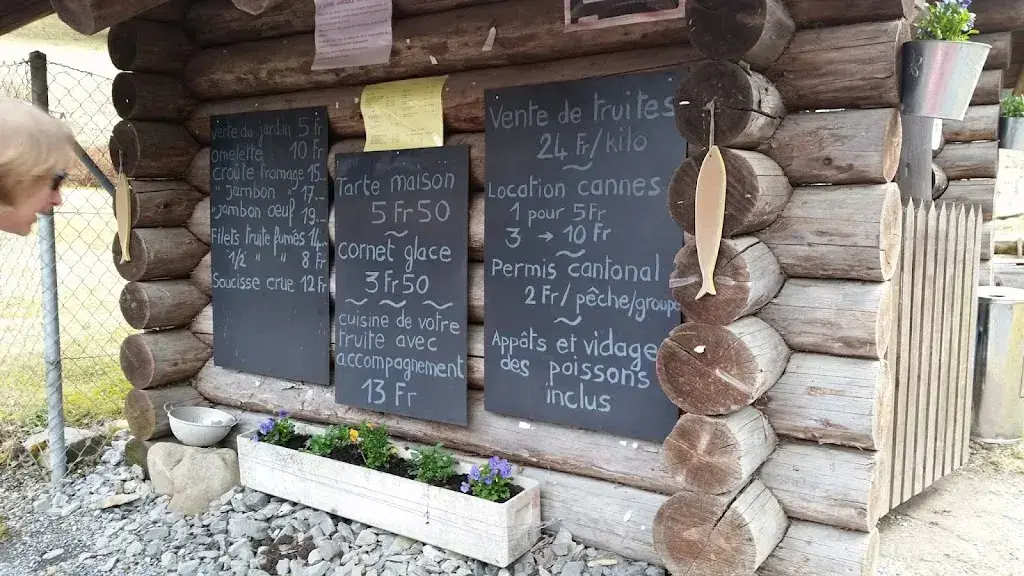 Vente du jardin 5 Fr
omelette 10 Fr
croute fromage 15.-
" jambon " 17.-
" jambon oeuf 19.-
Filets truite fumés 14.-
1/2 " " 8 Fr
Saucisse crue 12 Fr
Tarte maison
5 Fr 50
~
cornet glace
3 Fr 50
~ ~ ~
cuisine de votre
truite avec
accompagnement
13 Fr
Vente de truites
24 Fr/kilo
~
Location cannes
1 pour 5 Fr
3 → 10 Fr
~
Permis cantonal
2 Fr/pêche/groupe
~
Appâts et vidage
des poissons
inclus